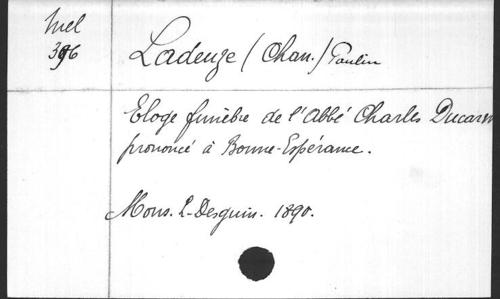 Mel
396
Ladeuze (Chan.) Paulin
Eloge funèbre de l'Abbé Charles Ducarm
prononcé à Bonne-Espérance.
Mons. L-Desguin. 1890.